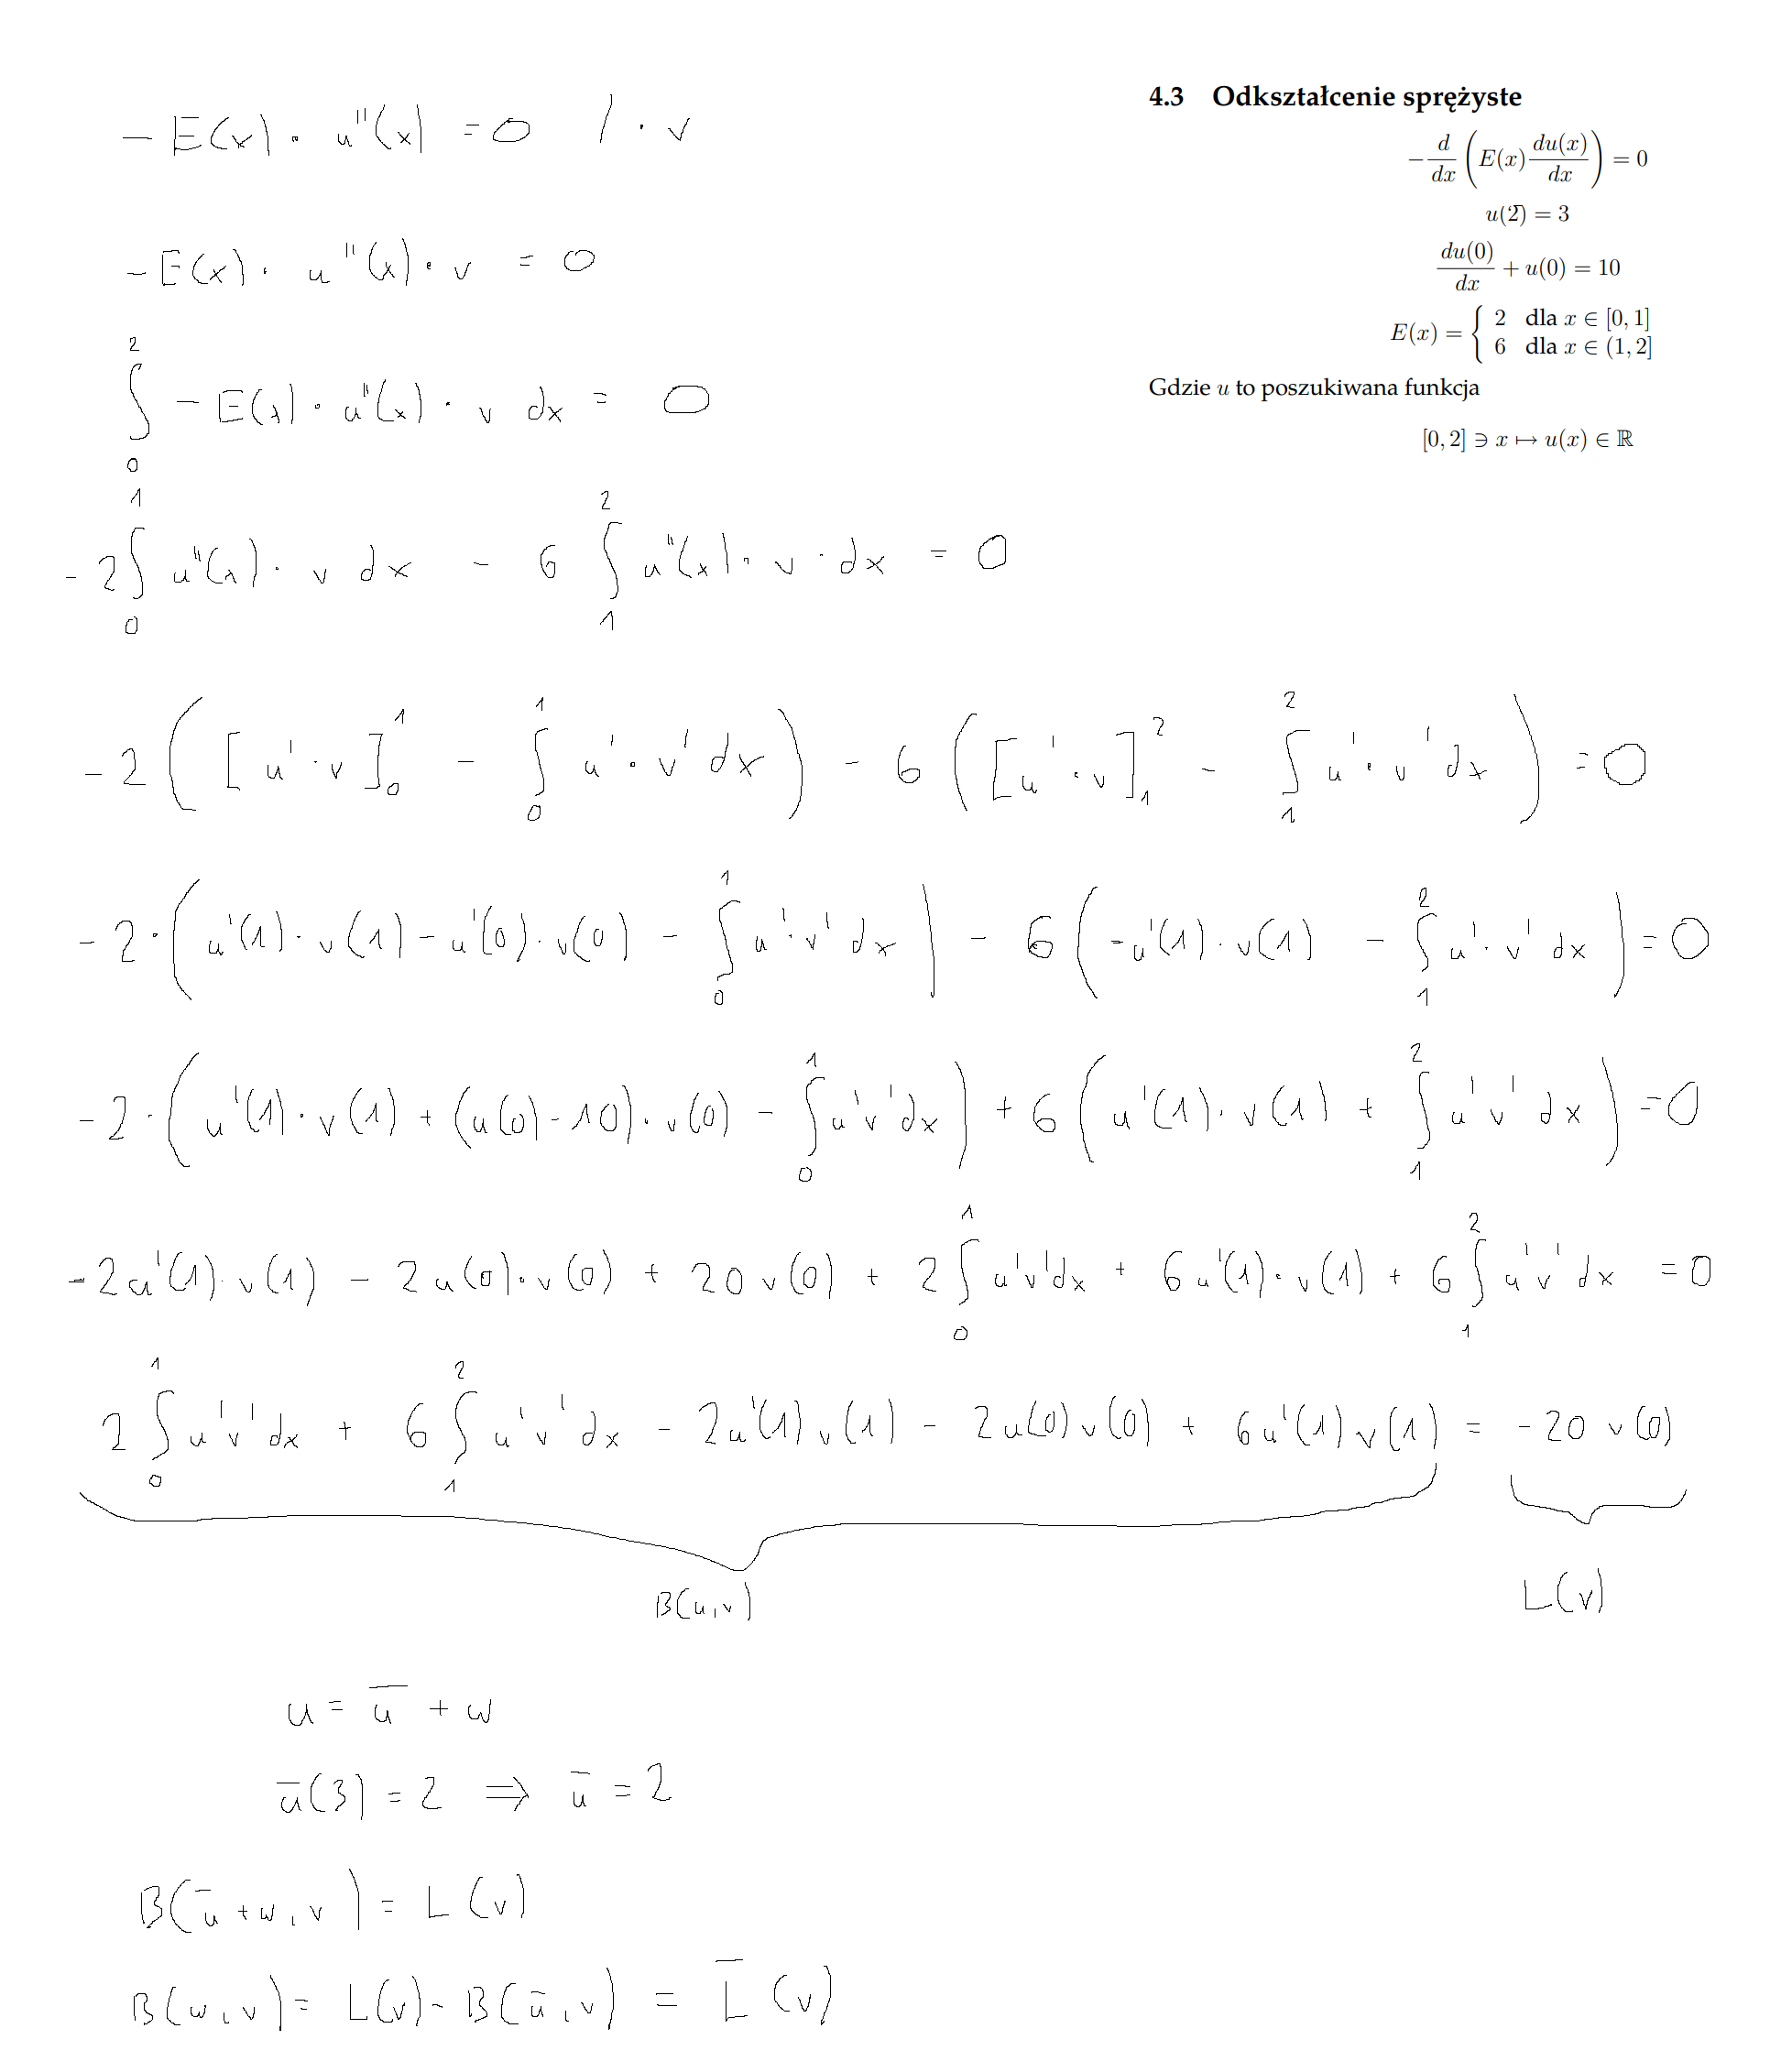 4.3 Odkształcenie sprężyste
-\frac{d}{dx}\left(E(x)\frac{du(x)}{dx}\right) = 0
u(2) = 3
\frac{du(0)}{dx} + u(0) = 10
E(x) = { 2 dla x ∈ [0, 1]
6 dla x ∈ (1, 2]
Gdzie u to poszukiwana funkcja
[0, 2] ∋ x ↦ u(x) ∈ ℝ
- E(x) · u''(x) = 0 / · v
- E(x) · u''(x) · v = 0
∫_0^2 - E(x) · u''(x) · v dx = 0
- 2 ∫_0^1 u''(x) · v dx - 6 ∫_1^2 u''(x) · v · dx = 0
- 2 ( [u' · v]_0^1 - ∫_0^1 u' · v' dx ) - 6 ( [u' · v]_1^2 - ∫_1^2 u' · v' dx ) = 0
- 2 · ( u'(1) · v(1) - u'(0) · v(0) - ∫_0^1 u' · v' dx ) - 6 ( -u'(1) · v(1) - ∫_1^2 u' · v' dx ) = 0
- 2 · ( u'(1) · v(1) + (u(0) - 10) · v(0) - ∫_0^1 u'v' dx ) + 6 ( u'(1) · v(1) + ∫_1^2 u'v' dx ) = 0
- 2u'(1) · v(1) - 2u(0) · v(0) + 20 v(0) + 2 ∫_0^1 u'v' dx + 6u'(1) · v(1) + 6 ∫_1^2 u'v' dx = 0
2 ∫_0^1 u'v' dx + 6 ∫_1^2 u'v' dx - 2u'(1) v(1) - 2u(0) v(0) + 6u'(1) v(1) = - 20 v(0)
B(u, v) L(v)
u = ū + w
ū(3) = 2 ⇒ ū = 2
B(ū + w, v) = L(v)
B(w, v) = L(v) - B(ū, v) = L̄(v)